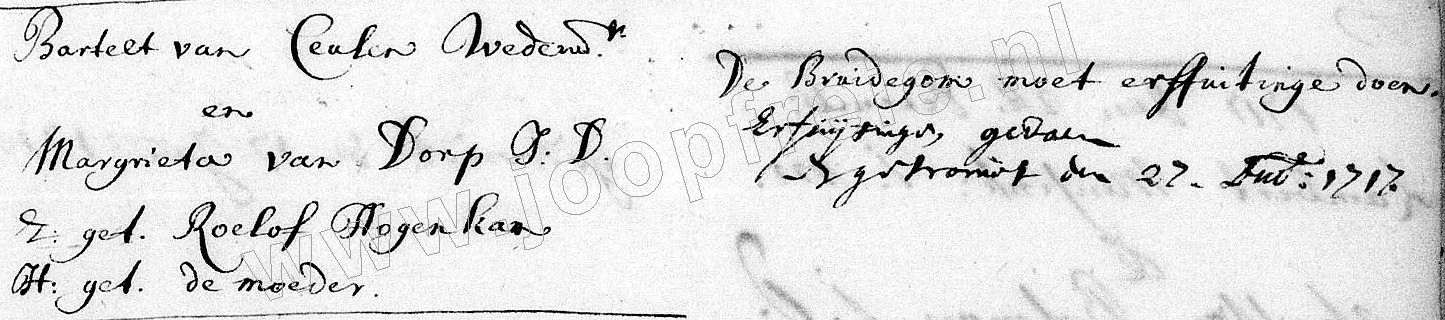 Bartelt van Ceulen Weduwn.r
en
Margrieta van Dorp J: D.
Z: get. Roelof Hogenkan
H: get. de moeder.
De Bruidegom moet erffuitinge doen.
Erfuÿtinge, gedaen
& getrouwt den 27. 1717.
www.joopfrelo.nl